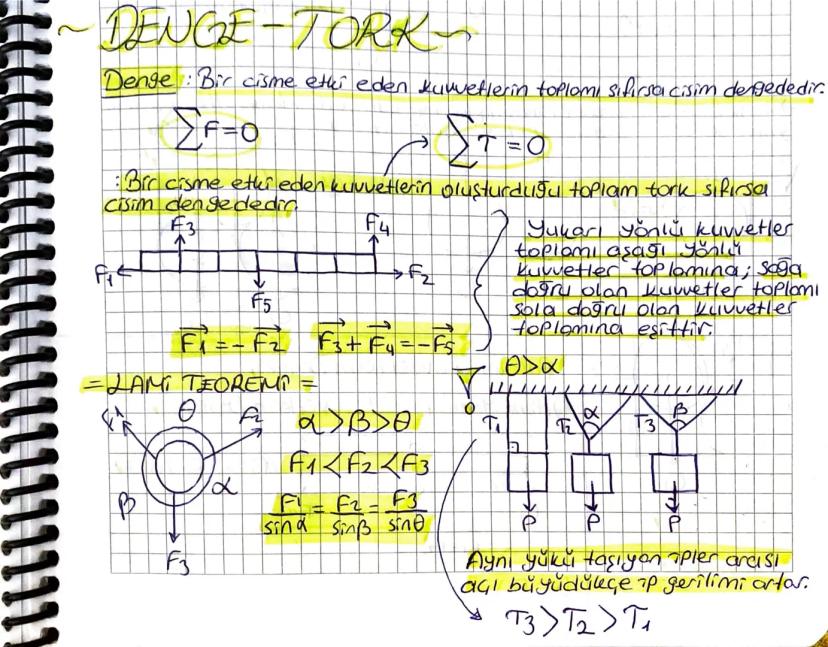 ~ DENGE - TORK ~
Denge : Bir cisme etki eden kuvvetlerin toplamı sıfırsa cisim dengededir.
∑F=0
∑T=0
: Bir cisme etki eden kuvvetlerin oluşturduğu toplam tork sıfırsa
cisim dengededir.
F3
F4
F1
F2
F5
Yukarı yönlü kuvvetler
toplamı aşağı yönlü
kuvvetler toplamına; sağa
doğru olan kuvvetler toplamı
sola doğru olan kuvvetler
toplamına eşittir.
F1 = - F2
F3 + F4 = - F5
= LAMİ TEOREMİ =
θ
F2
β
α
F3
α > β > θ
F1 < F2 < F3
F1/sinα = F2/sinβ = F3/sinθ
θ>α
T1
T2
α
T3
β
P
P
P
Aynı yükü taşıyan ipler arası
açı büyüdükçe ip gerilimi artar.
T3 > T2 > T1